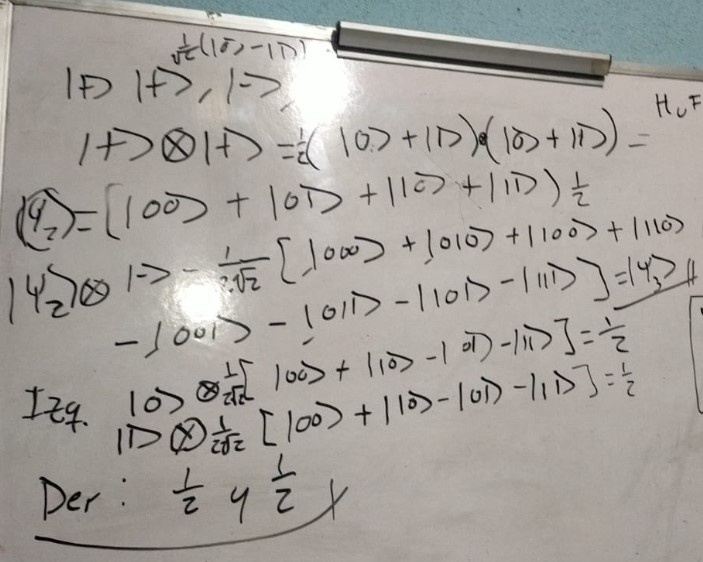 1/√2 (|0⟩ - |1⟩)
|+⟩ |+⟩, |-⟩,
|+⟩ ⊗ |+⟩ = 1/2 ( |0⟩ + |1⟩ ) · ( |0⟩ + |1⟩ ) =
|ψ₂⟩ = [ |00⟩ + |01⟩ + |10⟩ + |11⟩ ) 1/2
|ψ₂⟩ ⊗ |-⟩ - 1/2√2 [ |000⟩ + |010⟩ + |100⟩ + |110⟩
- |001⟩ - |011⟩ - |101⟩ - |111⟩ ] = |ψ₃⟩ //
Izq. |0⟩ ⊗ 1/2√2 [ |00⟩ + |10⟩ - |01⟩ - |11⟩ ] = 1/2
|1⟩ ⊗ 1/2√2 [ |00⟩ + |10⟩ - |01⟩ - |11⟩ ] = 1/2
Der : 1/2 y 1/2